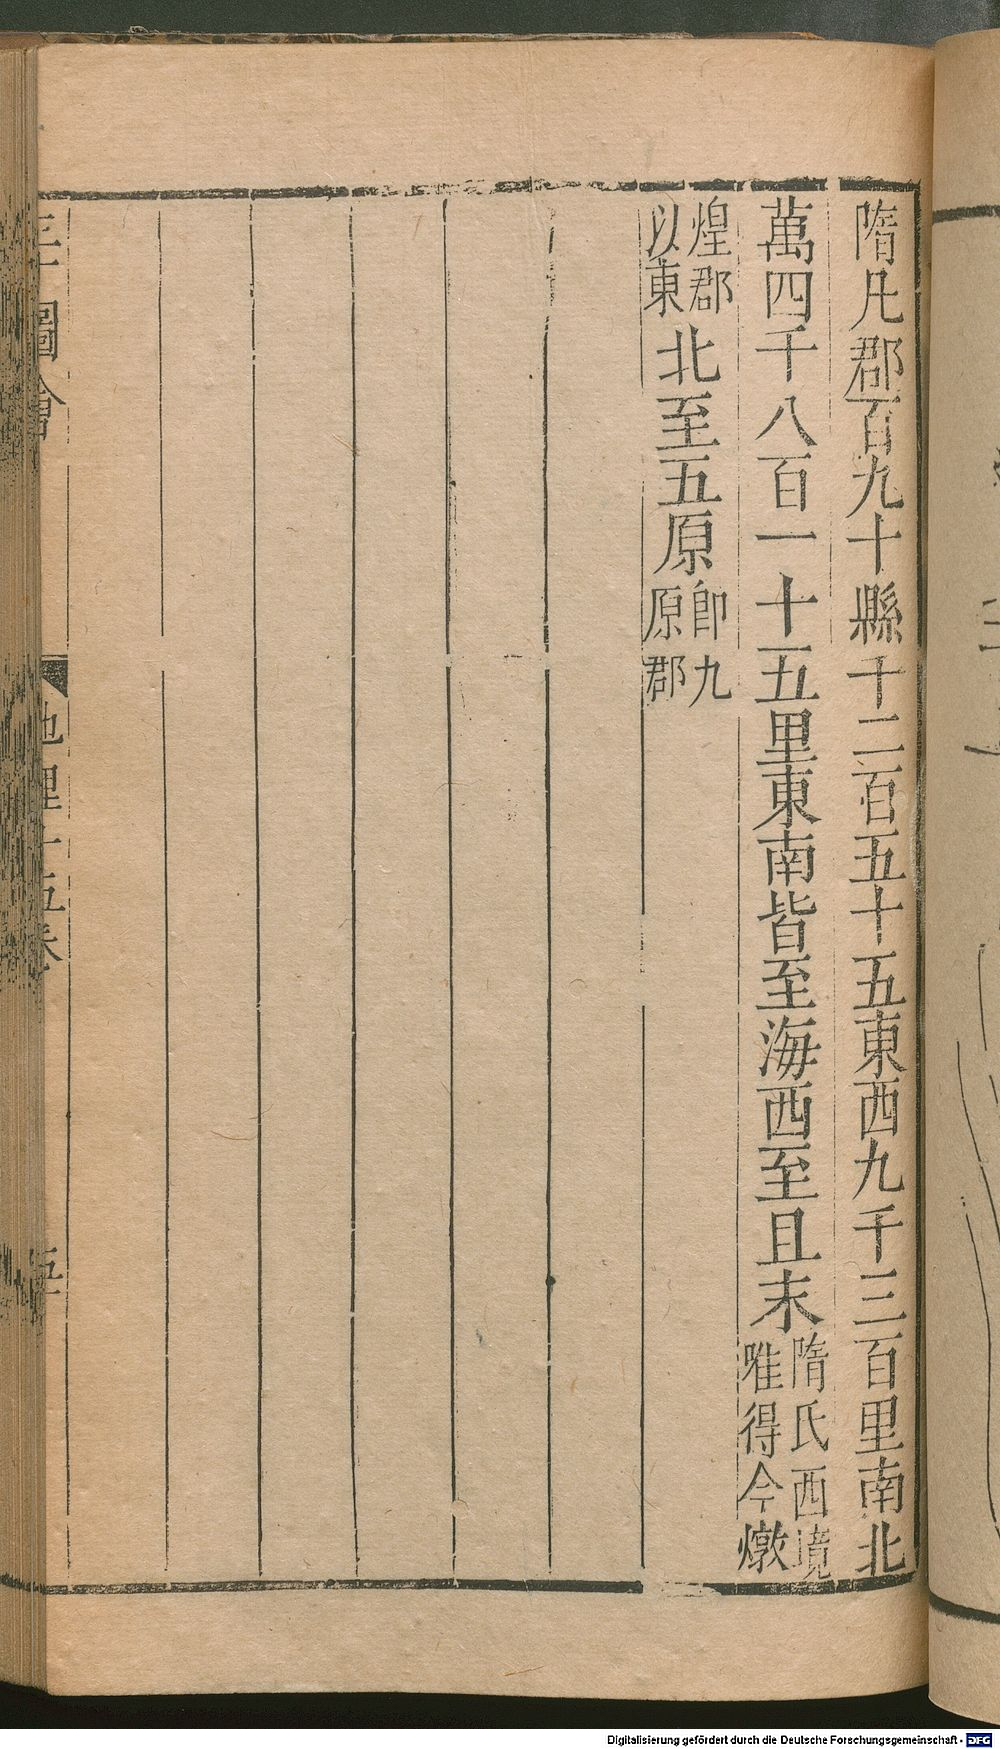 隋凡郡百九十縣千二百五十五東西九千三百里南北
萬四千八百一十五里東南皆至海西至且末隋氏西境
唯得今燉
煌郡
以東北至五原卽九
原郡
三才圖會
地理十五卷
Digitalisierung gefördert durch die Deutsche Forschungsgemeinschaft - DFG